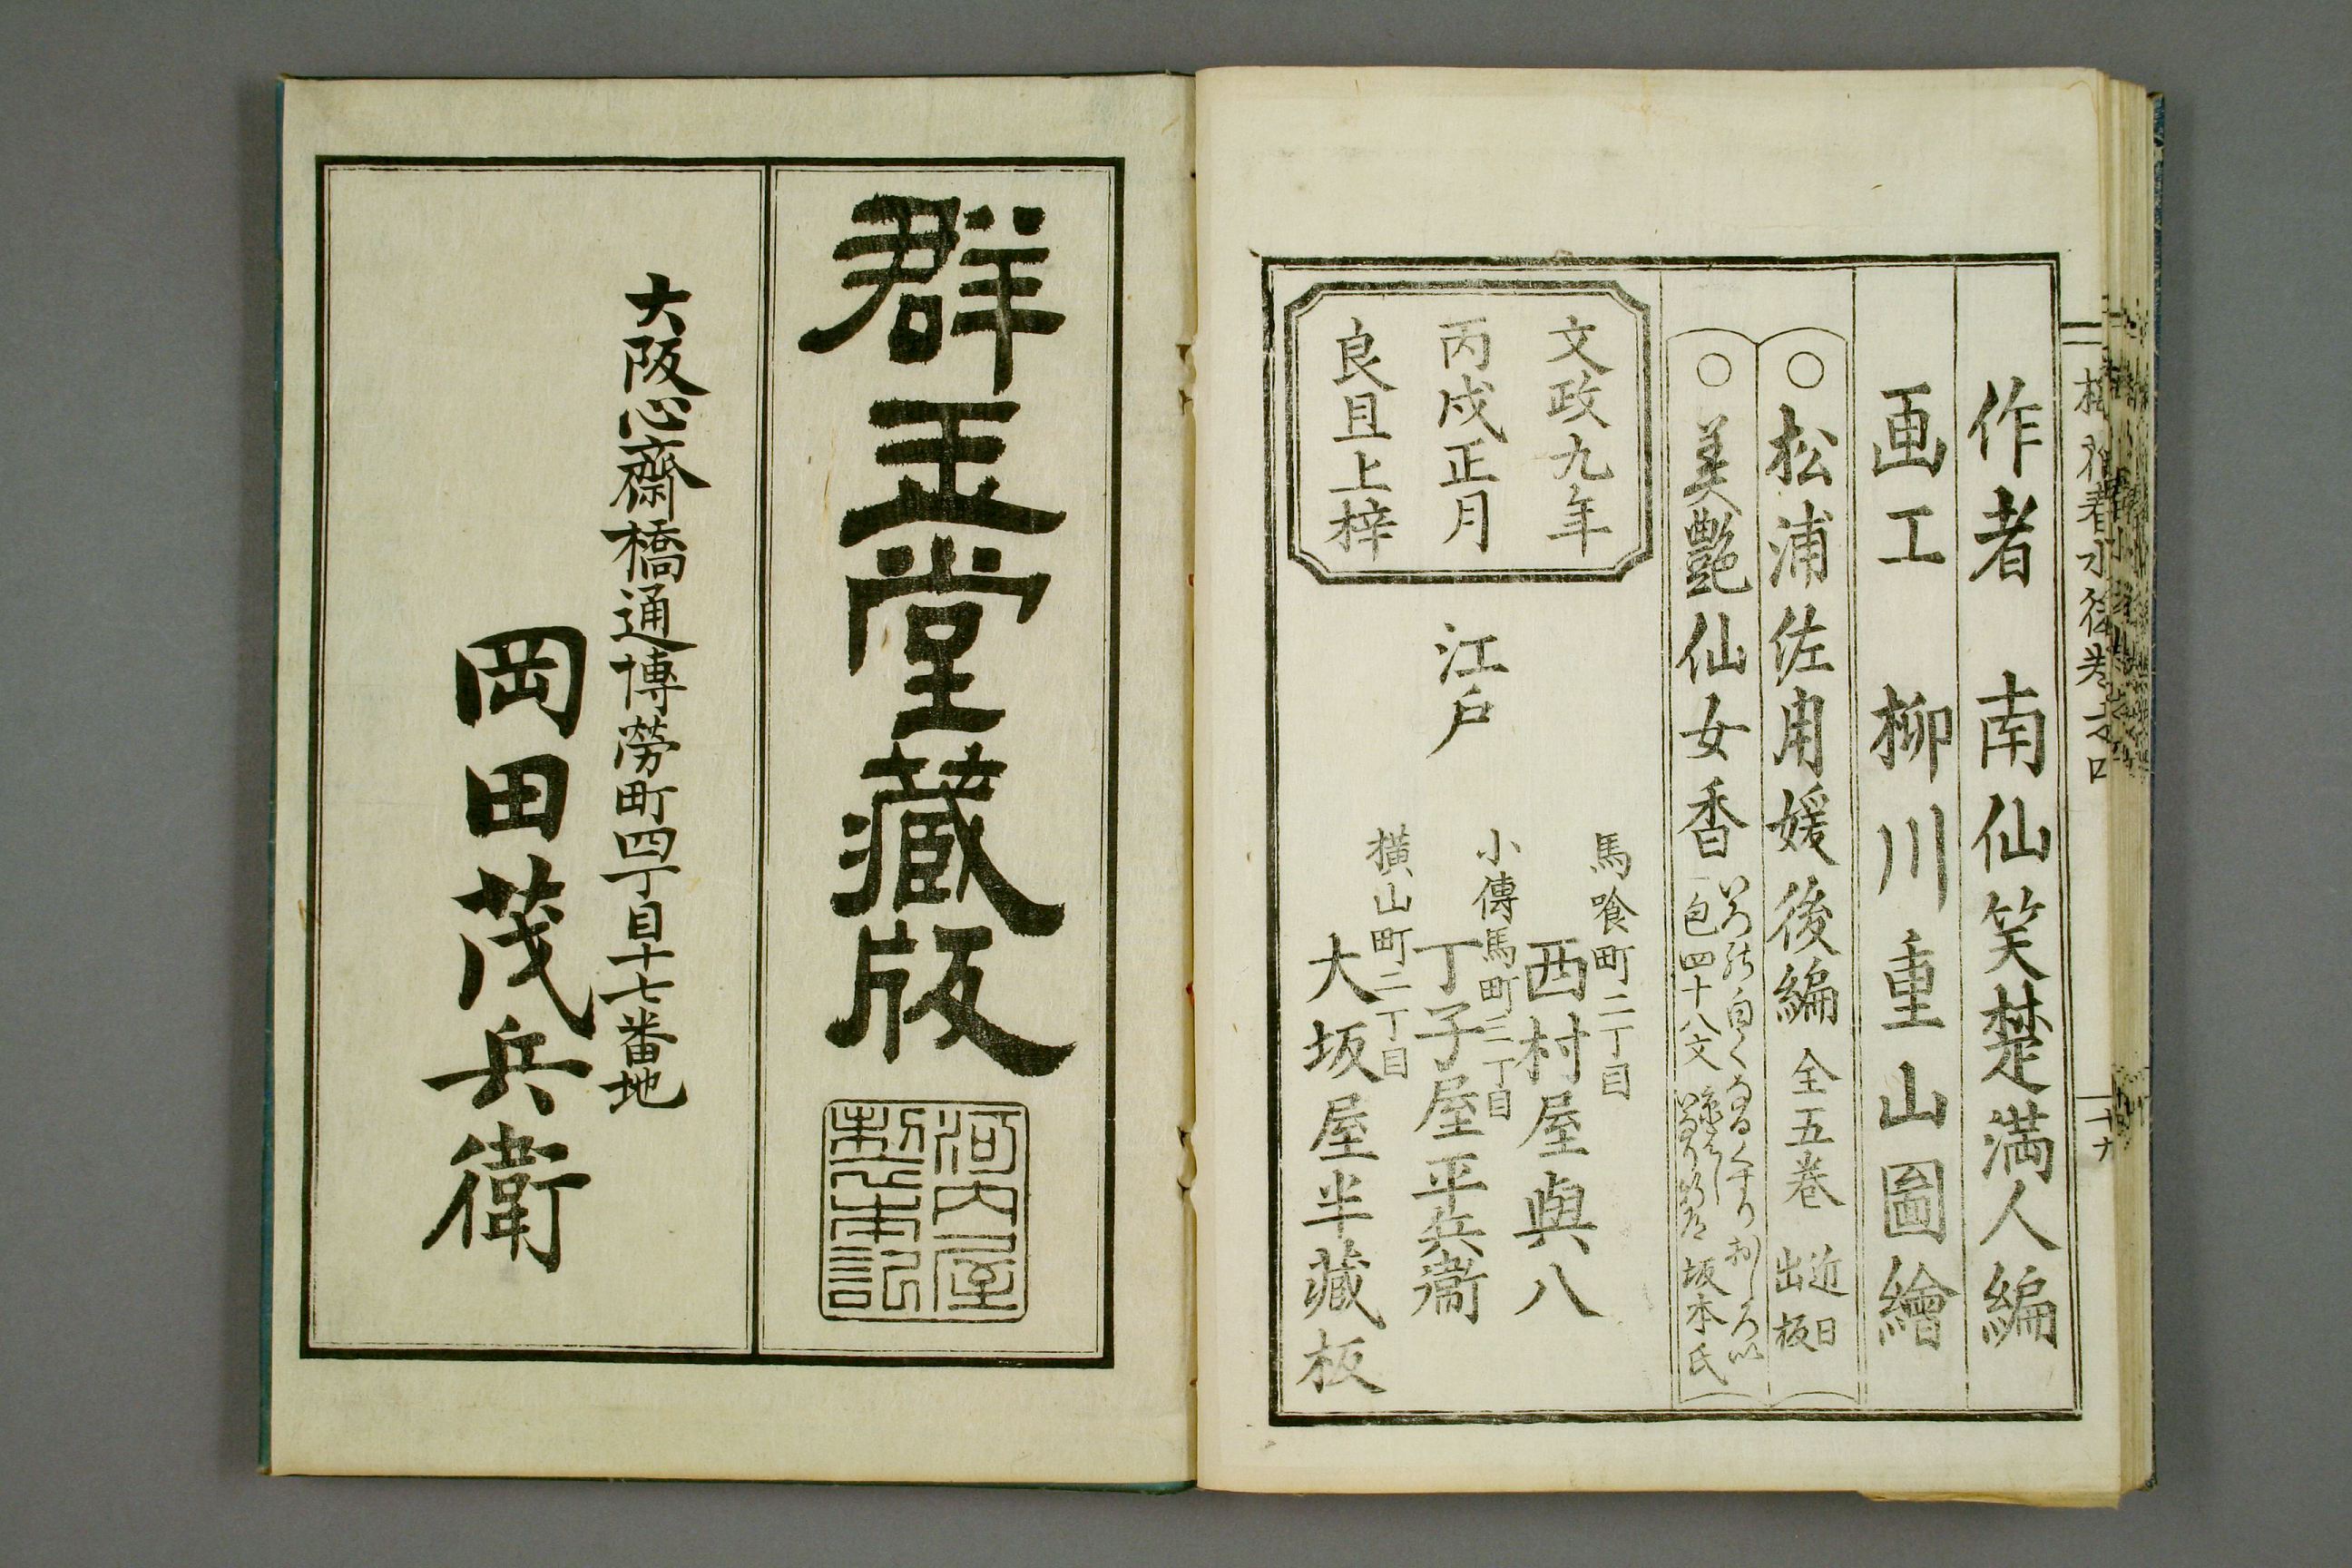 作者　南仙笑楚満人編
画工　柳川重山圖繪
○松浦佐用媛後編　全五巻　近日出板
○美艶仙女香　一包四十八文　坂本氏
いろを白くする くすり おしろい
文政九年
丙戌正月
良且上梓
江戸
馬喰町二丁目
西村屋與八
小傳馬町三丁目
丁子屋平兵衞
横山町二丁目
大坂屋半藏板
群玉堂藏版
河内屋
製本記
大阪心齋橋通博勞町四丁目十七番地
岡田茂兵衛